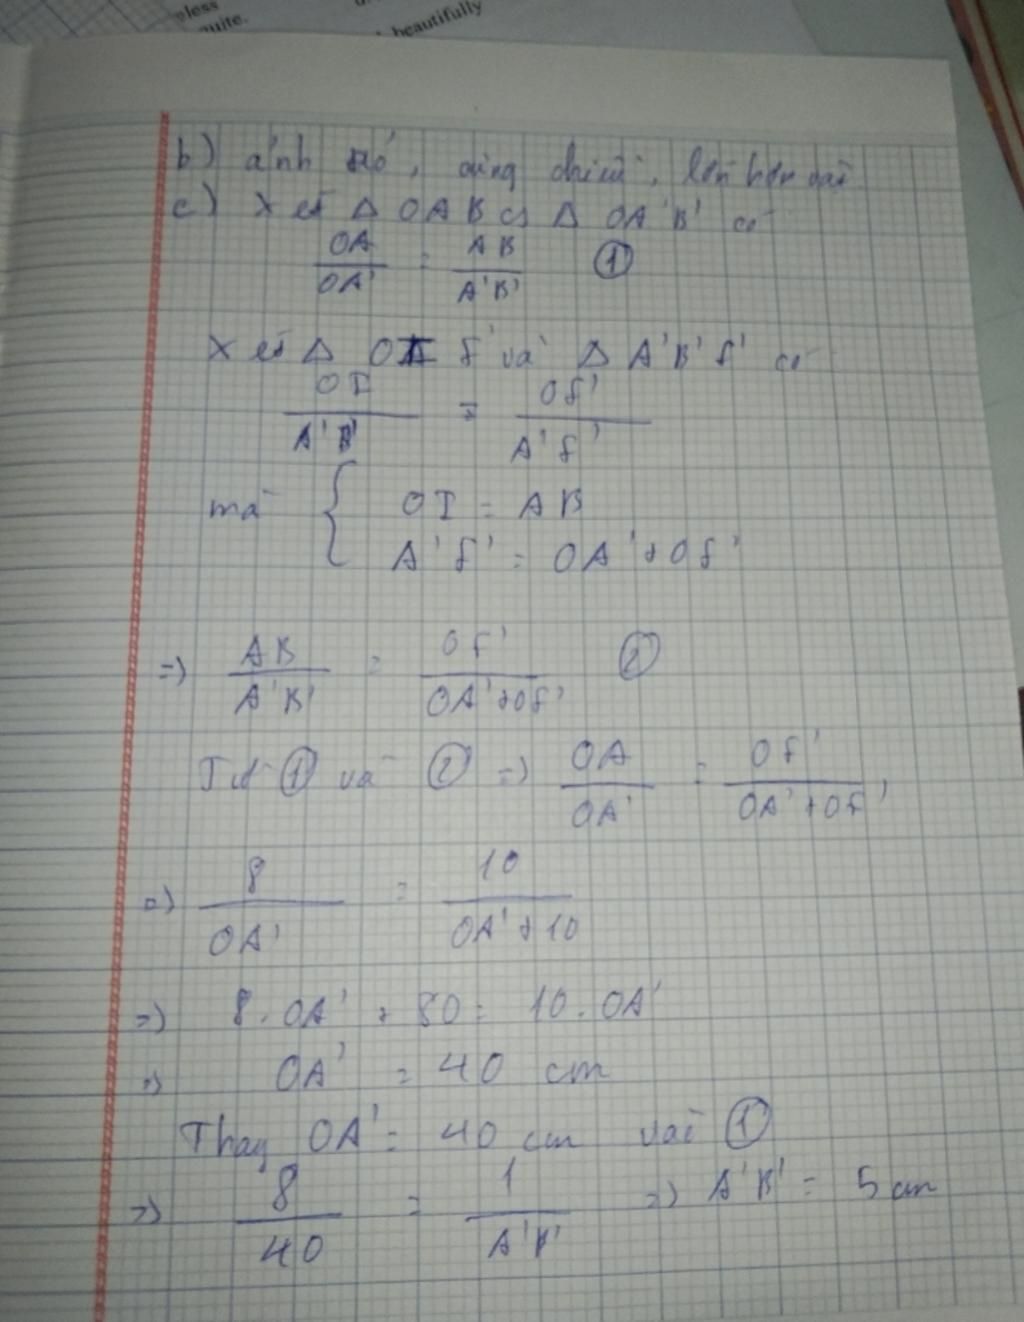 less
quite.
beautifully
b) ảnh ảo, cùng chiều, lớn hơn vật
c) Xét Δ OAB ∽ Δ OA'B' có
OA/OA' = AB/A'B' ①
Xét Δ OI f' và Δ A'B'f' có
OI/A'B' = Of'/A'f'
mà { OI = AB
A'f' = OA' + Of'
=> AB/A'B' = Of'/OA'+Of' ②
Từ ① và ② => OA/OA' = Of'/OA'+Of'
=> 8/OA' = 10/OA'+10
=> 8.OA' + 80 = 10.OA'
=> OA' = 40 cm
Thay OA' = 40 cm vào ①
=> 8/40 = 1/A'B' => A'B' = 5 cm